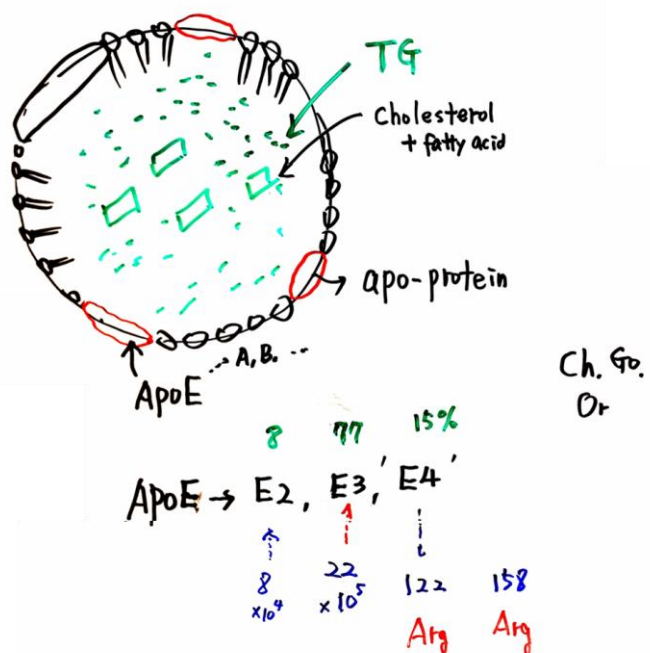 TG
Cholesterol
+ fatty acid
apo-protein
A, B. ...
ApoE
Ch. Go.
Or
8 77 15%
ApoE → E2, E3, 'E4'
8 22 122 158
×10⁴ ×10⁵
Arg Arg